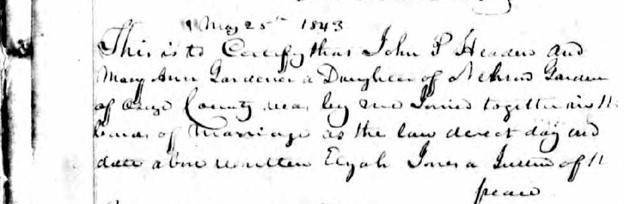 May 25th 1843
This is to Certify that John P Headen and
Mary Ann Gardener a Daughter of Nelson Garden
of Osage County was by me Joined together in th
bonds of Marriage as the law derect day and
date above written Elijah Jones a Justice of th
peace